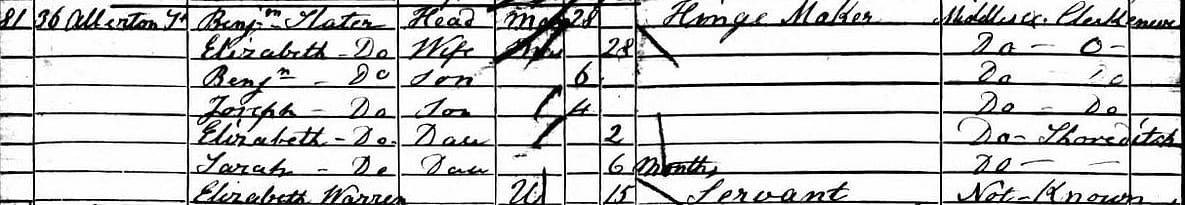 81 36 Allerton St Benjn Slater Head Mar 28 Hinge Maker Middlesex Clerkenwell
Elizabeth - Do Wife Mar 28 Do - Do -
Benjn - Do Son 6 Do Do
Joseph - Do Son 4 Do - Do
Elizabeth - Do. Dau 2 Do - Shoreditch
Sarah - Do Dau 6 Months Do -
Elizabeth Warren U 15 Servant Not - Known